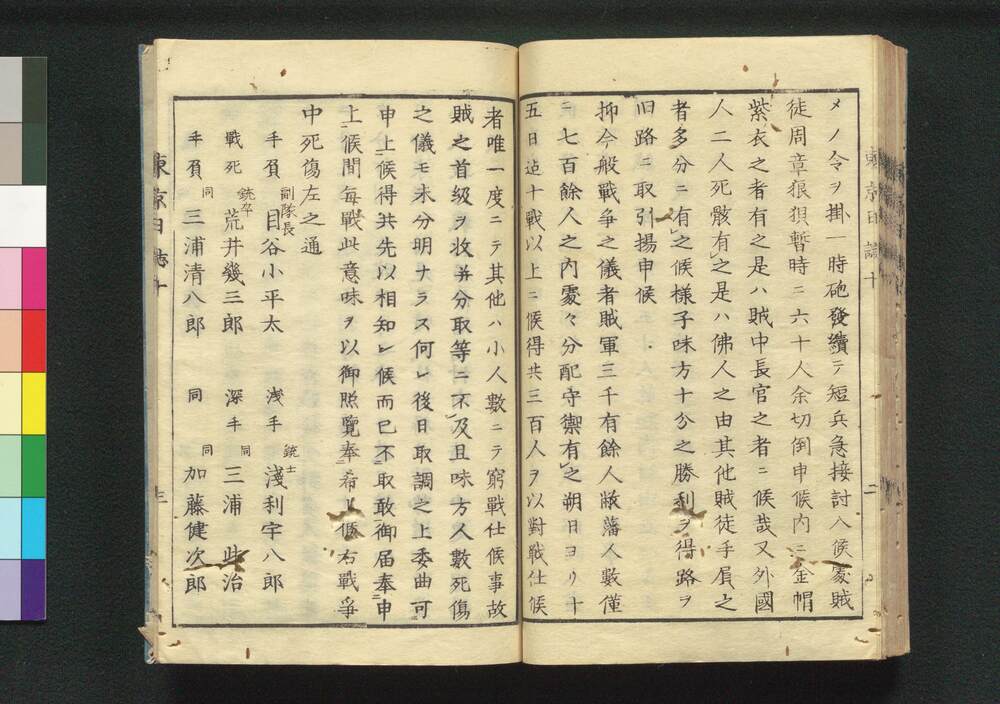 メノ令ヲ掛一時砲發續テ短兵急接討入候處賊
徒周章狼狽暫時ニ六十人余切倒申候内ニ金帽
紫衣之者有之是ハ賊中長官之者ニ候哉又外國
人二人死骸有レ之是ハ佛人之由其他賊徒手屓之
者多分ニ有レ之候様子味方十分之勝利ヲ得路ヲ
旧路ニ取引揚申候
抑今般戦争之儀者賊軍三千有餘人敝藩人數僅
ニ七百餘人之内處々分配守禦有レ之朔日ヨリ十
五日迠十戦以上ニ候得共三百人ヲ以對戦仕候
者唯一度ニテ其他ハ小人數ニテ窮戦仕候事故
賊之首級ヲ收并分取等ニ不レ及且味方人數死傷
之儀モ未分明ナラス何レ後日取調之上委曲可
申上候得共先以相知レ候而已不取敢御届奉申
上候間毎戦此意味ヲ以御照覧奉希上候右戦爭
中死傷左之通
手屓 副隊長 目谷小平太 浅手 銃士 淺利牢八郎
戰死 銃卒 荒井幾三郎 深手 同 三浦此治
手屓 同 三浦清八郎 同 同 加藤健次郎
東京日誌十
三
東京日誌十
二